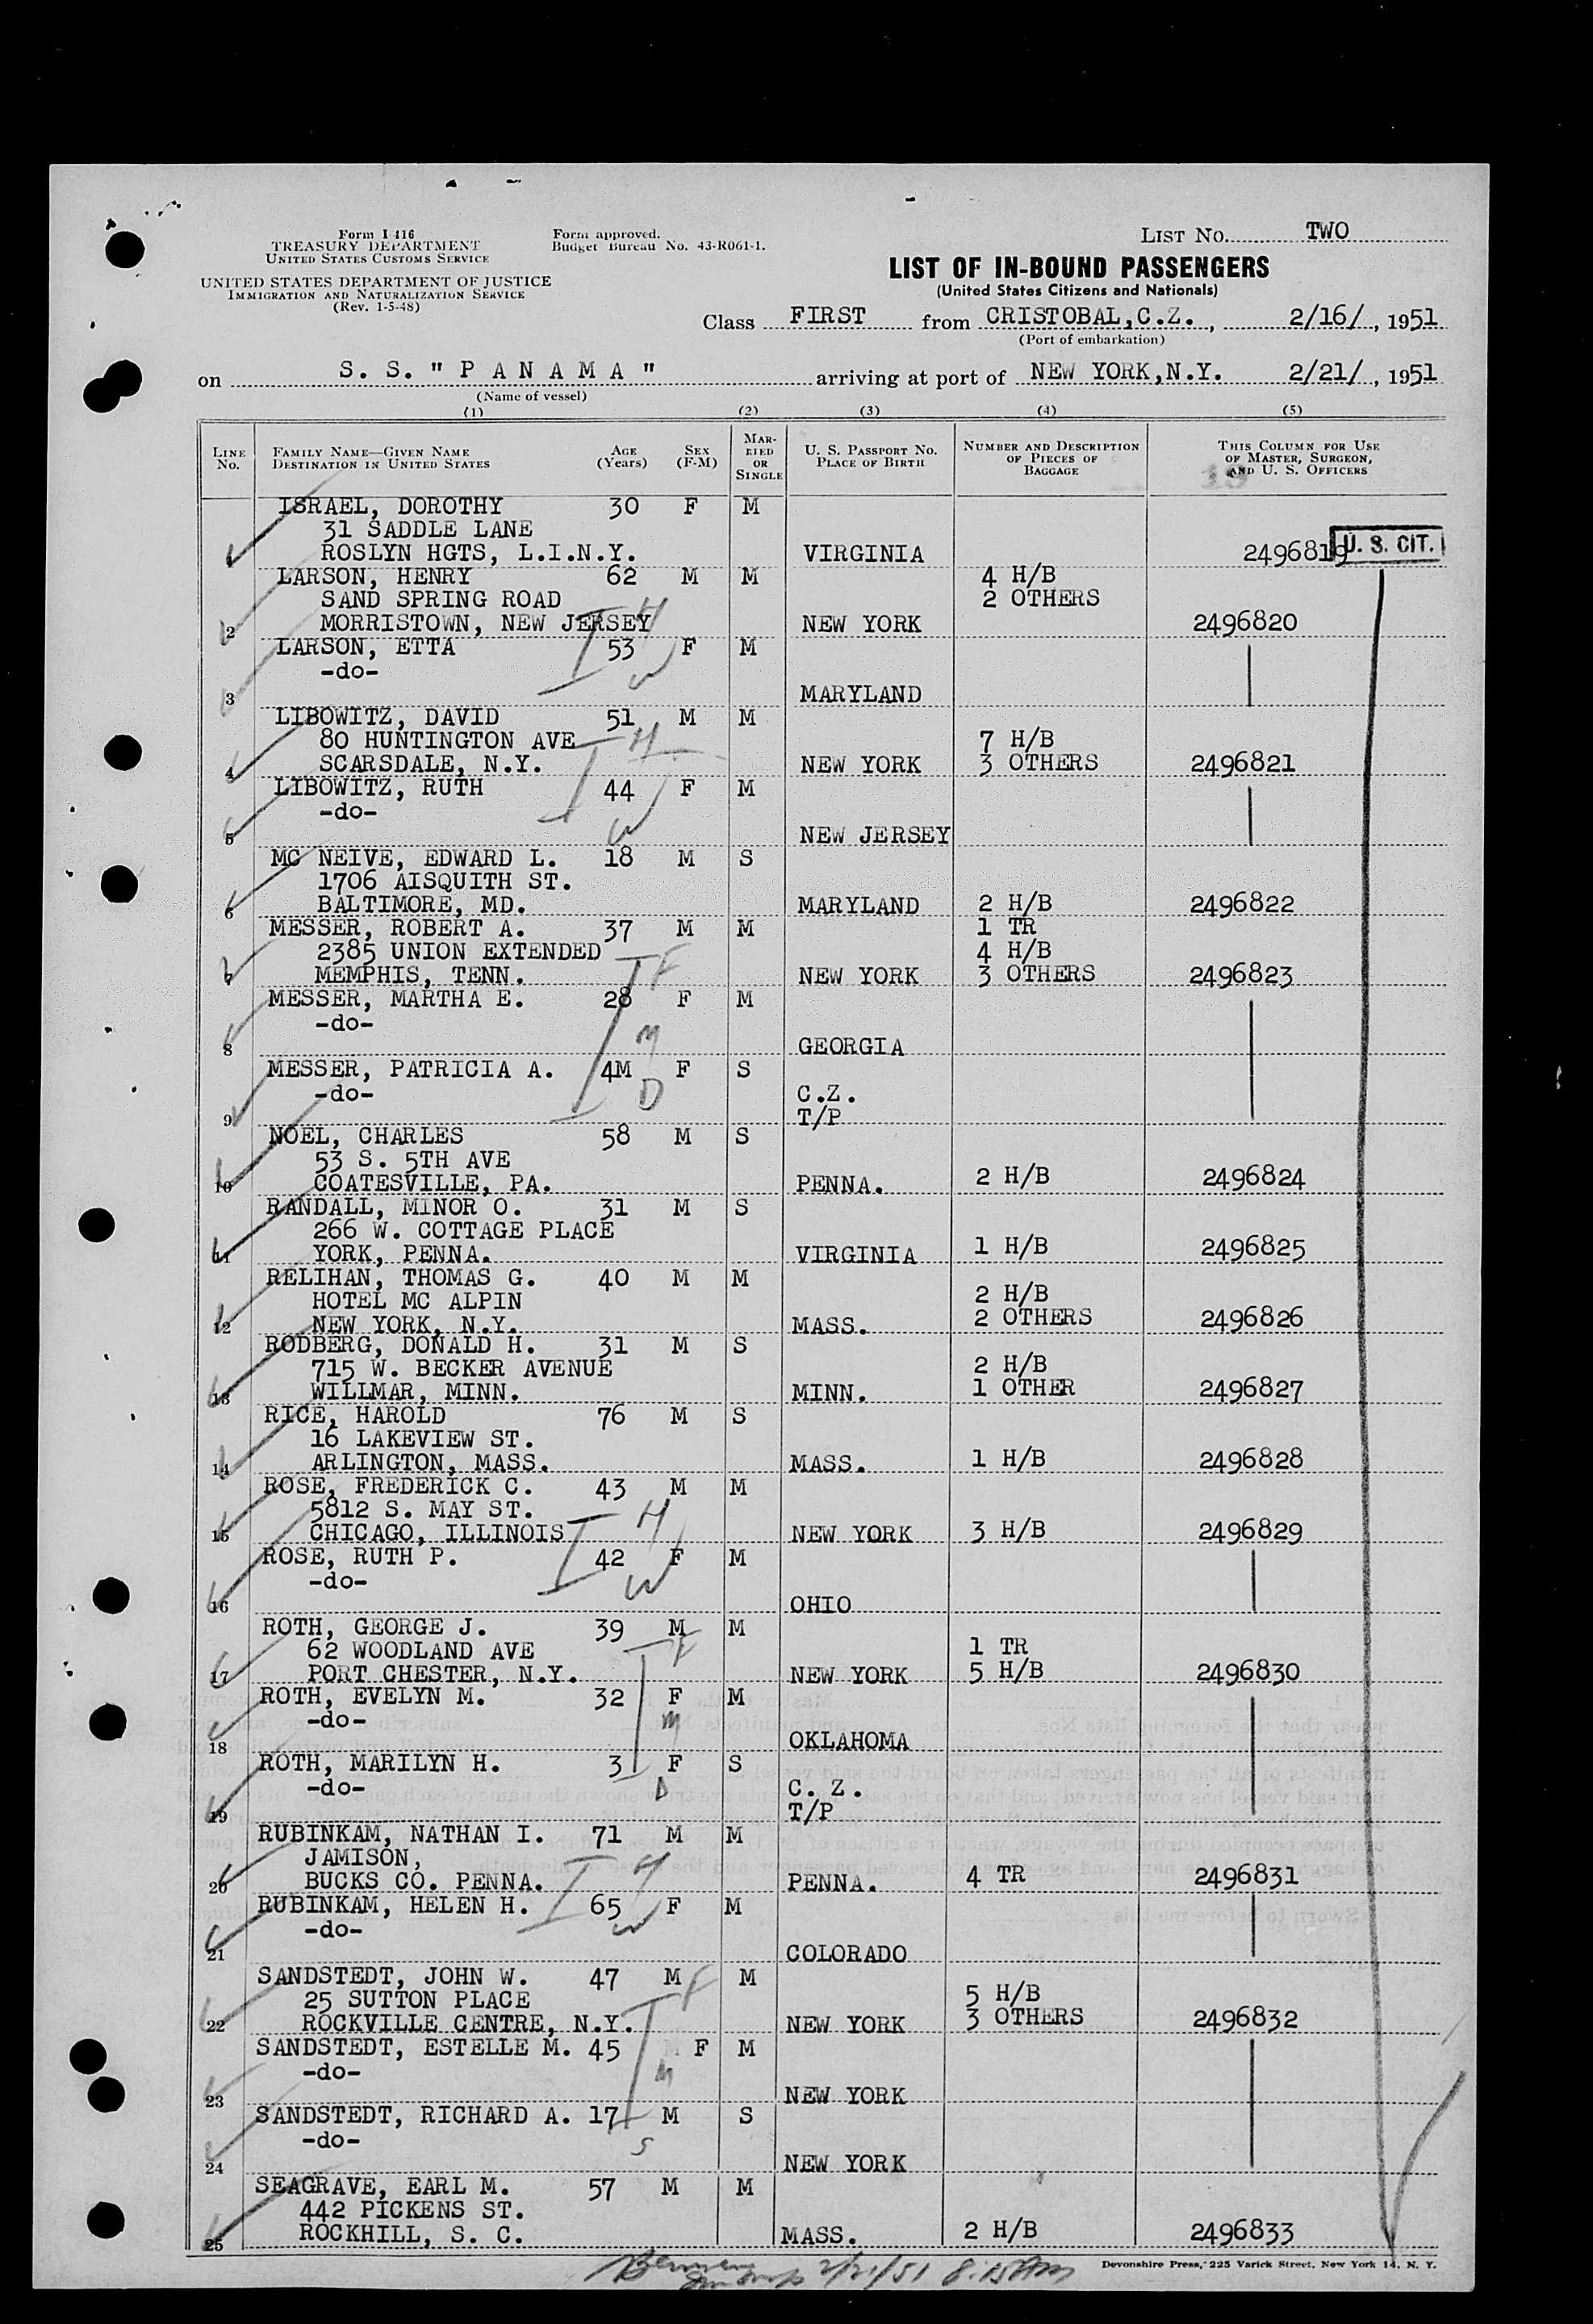 Form I 416
TREASURY DEPARTMENT
UNITED STATES CUSTOMS SERVICE
UNITED STATES DEPARTMENT OF JUSTICE
IMMIGRATION AND NATURALIZATION SERVICE
(Rev. 1-5-48)
Form approved.
Budget Bureau No. 43-R061-1.
LIST NO. TWO
LIST OF IN-BOUND PASSENGERS
(United States Citizens and Nationals)
Class FIRST from CRISTOBAL,C.Z., 2/16/, 1951
(Port of embarkation)
on S. S. " P A N A M A " arriving at port of NEW YORK,N.Y. 2/21/, 1951
(Name of vessel)
(1) (2) (3) (4) (5)
LINE NO. FAMILY NAME—GIVEN NAME DESTINATION IN UNITED STATES AGE (Years) SEX (F-M) MARRIED OR SINGLE U. S. PASSPORT NO. PLACE OF BIRTH NUMBER AND DESCRIPTION OF PIECES OF BAGGAGE THIS COLUMN FOR USE OF MASTER, SURGEON, AND U. S. OFFICERS
ISRAEL, DOROTHY 30 F M
31 SADDLE LANE
ROSLYN HGTS, L.I.N.Y. VIRGINIA 2496819 U. S. CIT.
LARSON, HENRY 62 M M 4 H/B
SAND SPRING ROAD 2 OTHERS
2 MORRISTOWN, NEW JERSEY H NEW YORK 2496820
LARSON, ETTA 53 F M
-do- W
3 MARYLAND
LIBOWITZ, DAVID 51 M M
80 HUNTINGTON AVE H 7 H/B
4 SCARSDALE, N.Y. NEW YORK 3 OTHERS 2496821
LIBOWITZ, RUTH 44 F M
-do- W
5 NEW JERSEY
MC NEIVE, EDWARD L. 18 M S
1706 AISQUITH ST.
6 BALTIMORE, MD. MARYLAND 2 H/B 2496822
MESSER, ROBERT A. 37 M M 1 TR
2385 UNION EXTENDED 4 H/B
7 MEMPHIS, TENN. F NEW YORK 3 OTHERS 2496823
MESSER, MARTHA E. 28 F M
-do- M
8 GEORGIA
MESSER, PATRICIA A. 4M F S
-do- D C.Z.
9 T/P
NOEL, CHARLES 58 M S
53 S. 5TH AVE
10 COATESVILLE, PA. PENNA. 2 H/B 2496824
RANDALL, MINOR O. 31 M S
266 W. COTTAGE PLACE
11 YORK, PENNA. VIRGINIA 1 H/B 2496825
RELIHAN, THOMAS G. 40 M M
HOTEL MC ALPIN 2 H/B
12 NEW YORK, N.Y. MASS. 2 OTHERS 2496826
RODBERG, DONALD H. 31 M S
715 W. BECKER AVENUE 2 H/B
13 WILLMAR, MINN. MINN. 1 OTHER 2496827
RICE, HAROLD 76 M S
16 LAKEVIEW ST.
14 ARLINGTON, MASS. MASS. 1 H/B 2496828
ROSE, FREDERICK C. 43 M M
5812 S. MAY ST. H
15 CHICAGO, ILLINOIS NEW YORK 3 H/B 2496829
ROSE, RUTH P. 42 F M
-do- W
16 OHIO
ROTH, GEORGE J. 39 M M
62 WOODLAND AVE F 1 TR
17 PORT CHESTER, N.Y. NEW YORK 5 H/B 2496830
ROTH, EVELYN M. 32 F M
-do- M
18 OKLAHOMA
ROTH, MARILYN H. 3 F S
-do- D C. Z.
19 T/P
RUBINKAM, NATHAN I. 71 M M
JAMISON, H
20 BUCKS CO. PENNA. PENNA. 4 TR 2496831
RUBINKAM, HELEN H. 65 F M
-do- W
21 COLORADO
SANDSTEDT, JOHN W. 47 M F M
25 SUTTON PLACE 5 H/B
22 ROCKVILLE CENTRE, N.Y. NEW YORK 3 OTHERS 2496832
SANDSTEDT, ESTELLE M. 45 F M
-do- M
23 NEW YORK
SANDSTEDT, RICHARD A. 17 M S
-do- S
24 NEW YORK
SEAGRAVE, EARL M. 57 M M
442 PICKENS ST.
25 ROCKHILL, S. C. MASS. 2 H/B 2496833
2/21/51 8:15 AM
Devonshire Press, 225 Varick Street, New York 14, N. Y.